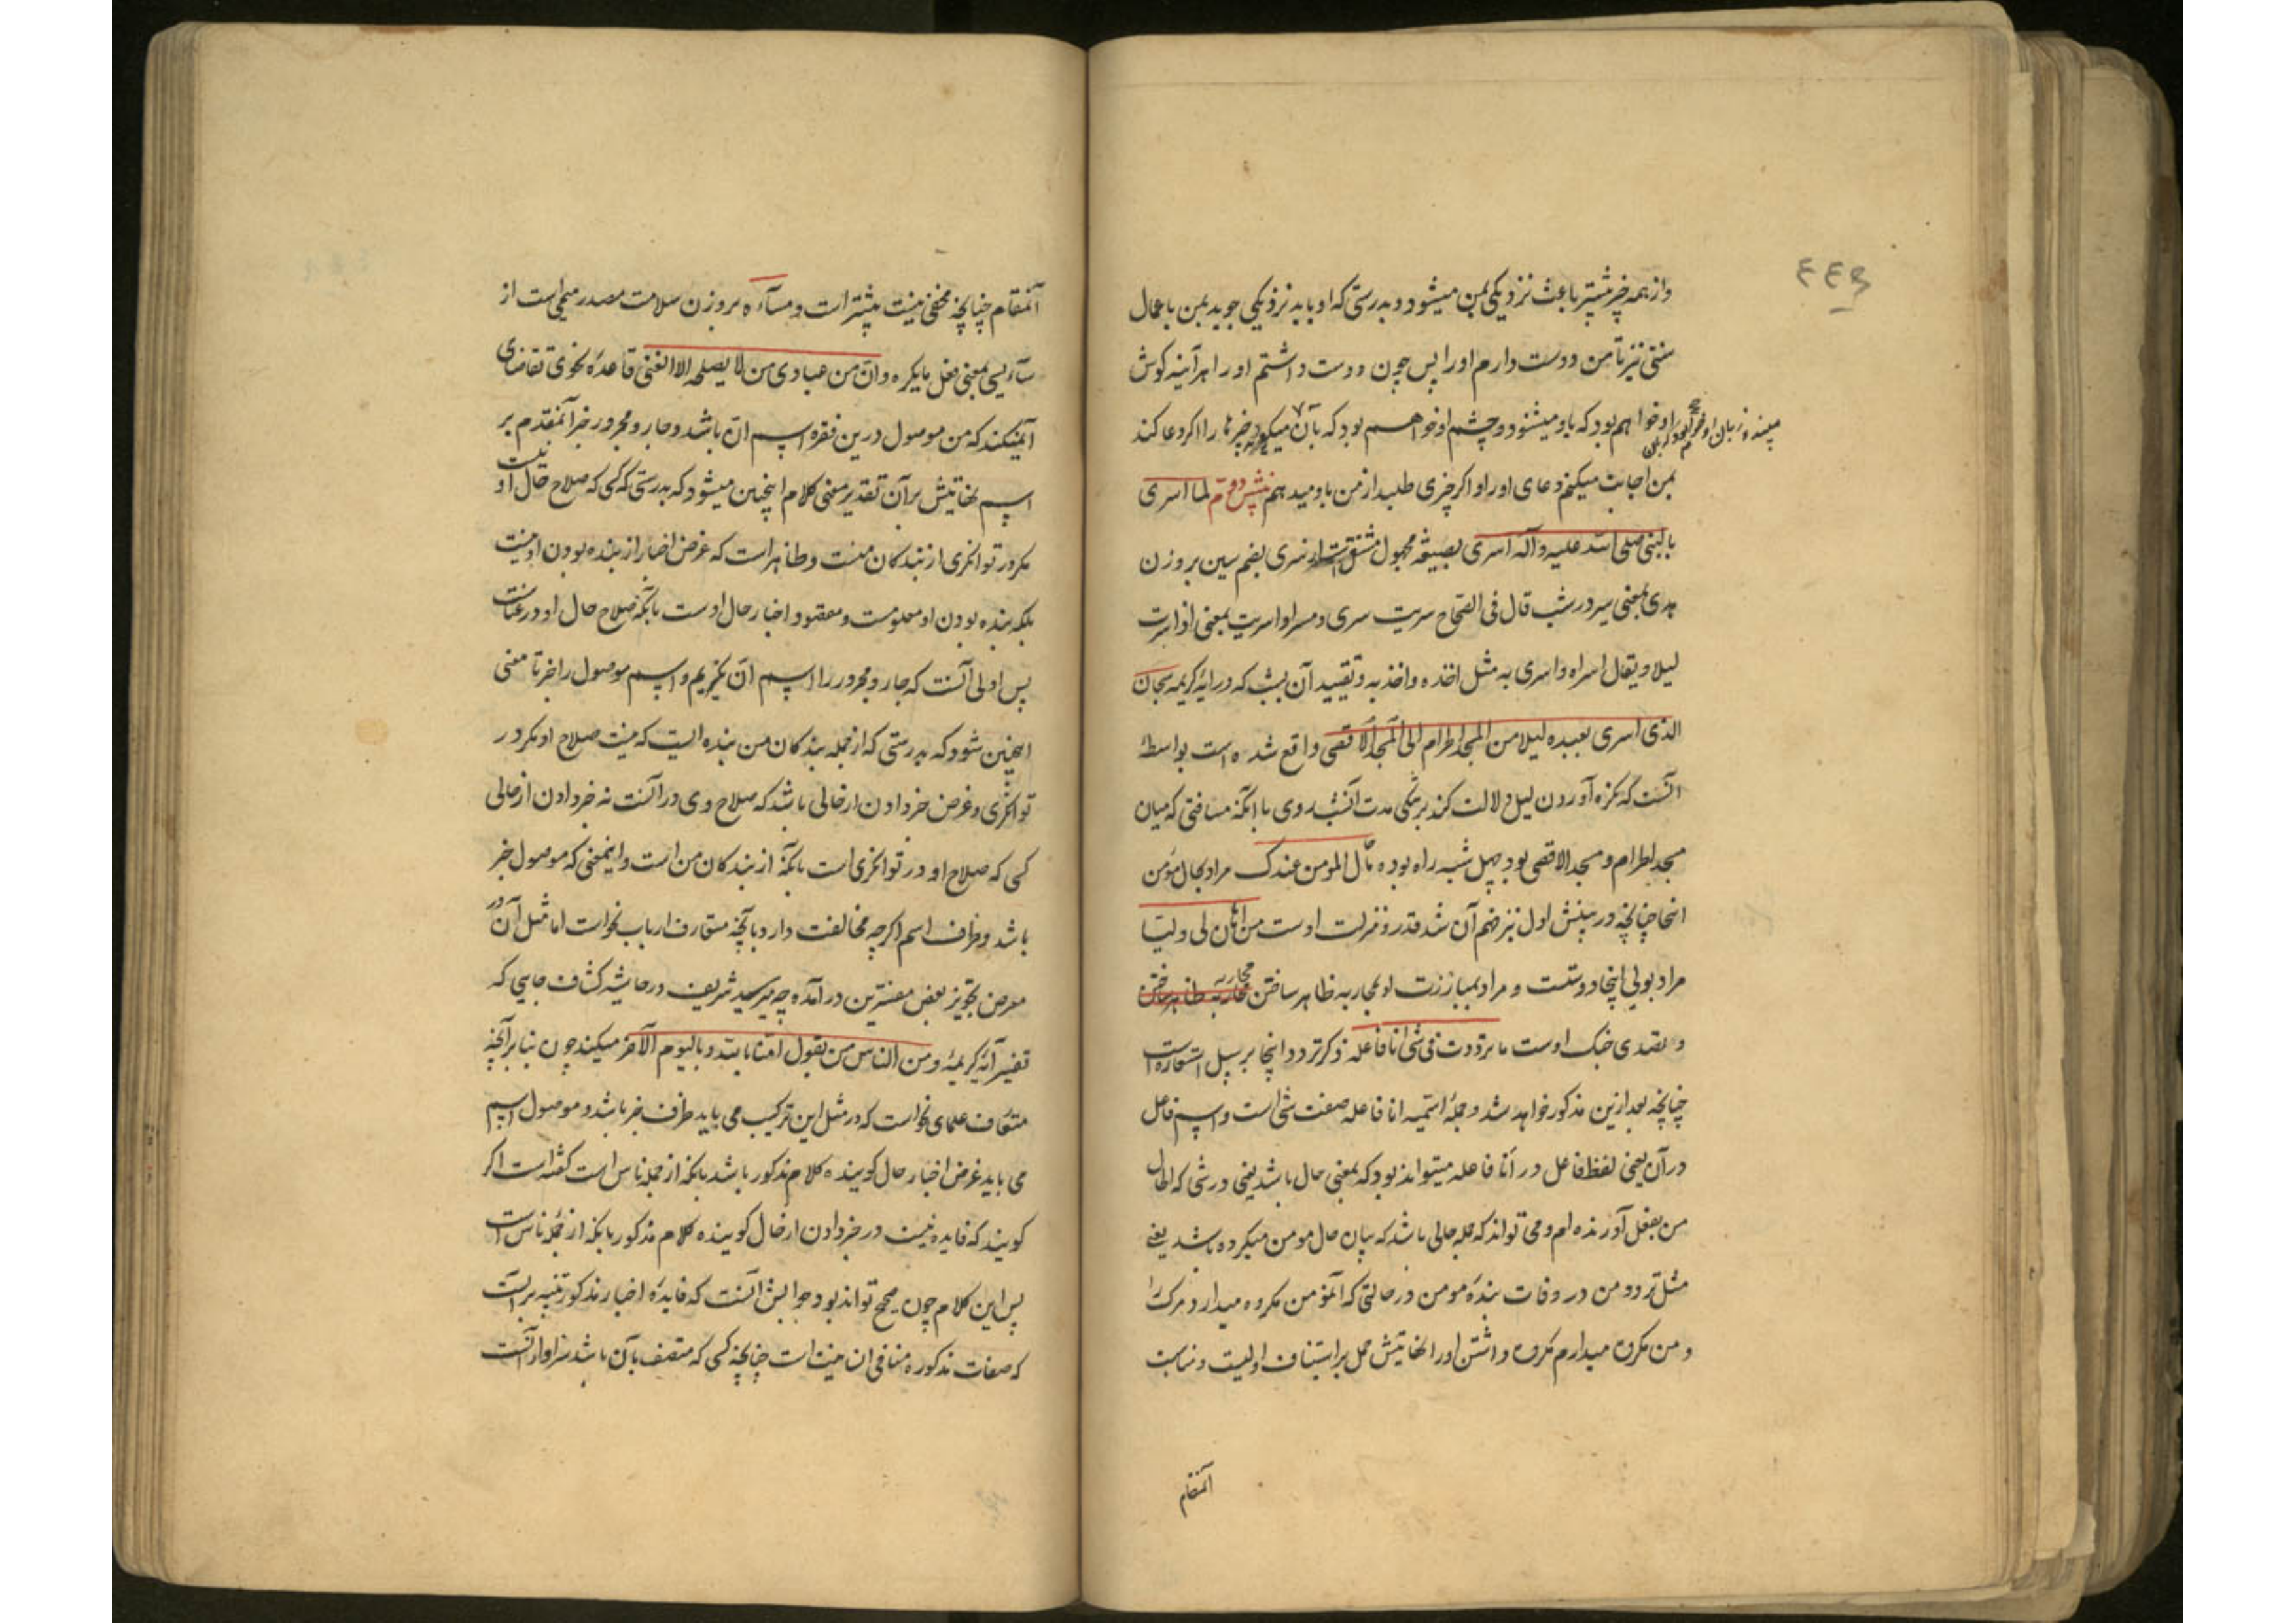 ۴۴۹
وازهمه خبر بیشتر باعث نزدیکی بمن میشود و بدرستی که او باید نزدیکی جوید بمن باعمال
سنتی نیز تا من دوست دارم او را پس چون دوست داشتم او را هر آینه کوش
او خواهم بود که باو میشنود و چشم او خواهم بود که بآن میکیرد چیزها را اکر دعا کند
میبیند و زبان او خواهم بود که بآن
بمن اجابت میکنم دعای او را و اکر چیزی طلبد از من باو میدهم لما اسری
بالنبی صلی الله علیه و آله اسری بصیغه مجهول مشتق است از سری بضم سین بروزن
هدی بمعنی سیر در شب قال فی الصحاح سریت سری و مسرا و اسریت بمعنی اذا سرت
لیلا و یقال اسراه و اسری به مثل اخذه و اخذ به و تقیید آن بشب که در آیهٔ کریمه سبحان
الذی اسری بعبده لیلا من المسجد الحرام الی المسجد الاقصی واقع شده است بواسطهٔ
آنست که نکره آوردن لیل دلالت کند بر تنکی مدت آنشب روی با آنکه مسافتی که میان
مسجد الحرام و مسجد الاقصی بود چهل شبه راه بوده ما حال المومن عندک مراد بحال مؤمن
اینجا چنانچه در بینش اول نیز فهم آن شد قدر و منزلت اوست من اهان لی ولیا
مراد بولی اینجا دوستست و مراد بمبارزت او بمحاربه ظاهر ساختن محاربه ظاهر ساختن
محاربه
و تصدی جنک اوست ما ترددت فی شی انا فاعله ذکر تردد اینجا بر سبیل استعاره است
چنانچه بعد ازین مذکور خواهد شد و جملهٔ اسمیه انا فاعله صفت شی است و اسم فاعل
در آن یعنی لفظ فاعل در انا فاعله میتواند بود که بمعنی حال باشد یعنی در شی که الحال
من بفعل آورنده ام و می تواند که جمله حالی باشد که بیان حال مومن میکرده باشد یعنی
مثل تردد من در وفات بندهٔ مومن در حالتی که آنمؤمن مکروه میدارد مرک را
و من مکروه میدارم مکروه داشتن او را نهایتش حمل بر استیناف اولیست و مناسبت
آنمقام
آنمقام چنانچه مخفی نیست بیشتر است و مسآءه بروزن سلامت مصدر میمی است از
سآء یسی بمعنی فعل مایکره و ان من عبادی من لا یصلحه الا الغنی قاعدهٔ نحوی تقاضای
آن میکند که من موصول درین فقره اسم ان باشد و جار و مجرور خبر آنمقدم بر
اسم نهایتش بر آن تقدیر معنی کلام اینچنین میشود که بدرستی که کسی که صلاح حال او نیست
مکر در توانکری از بندکان منست و ظاهر است که غرض اخبار از بنده بودن او نیست
بلکه بنده بودن او معلومست و مقصود اخبار حال اوست بآنکه صلاح حال او در غناست
پس اولی آنست که جار و مجرور را اسم ان بکیریم و اسم موصول را خبر تا معنی
اینچنین شود که بدرستی که از جمله بندکان من بنده ایست که نیست صلاح او مکر در
توانکری و غرض خبر دادن از حالی باشد که صلاح وی در آنست نه خبر دادن از حالی
کسی که صلاح او در توانکری است بآنکه از بندکان من است و اینمعنی که موصول خبر
باشد و ظرف اسم اکرچه مخالفت دارد بآنچه متعارف ارباب نحو است اما مثل آن در
معرض تجویز بعض مفسرین در آمده چه میر سید شریف در حاشیهٔ کشاف جایی که
تفسیر آیهٔ کریمهٔ و من الناس من یقول آمنا بالله و بالیوم الآخر میکند چون بنا بر آنچه
متعارف علمای نحو است که در مثل این ترکیب می باید ظرف خبر باشد و موصول اسم
می باید غرض اخبار حال کوینده کلام مذکور باشد بآنکه از جمله ناس است کفته است اکر
کویند که فایده نیست در خبر دادن از حال کوینده کلام مذکور بآنکه از جمله ناس است
پس این کلام چون صحیح تواند بود جوابش آنست که فایدهٔ اخبار مذکور تنبیه بر آنست
که صفات مذکوره منافی انسانیت است چنانچه کسی که متصف بآن باشد سزاوار آنست